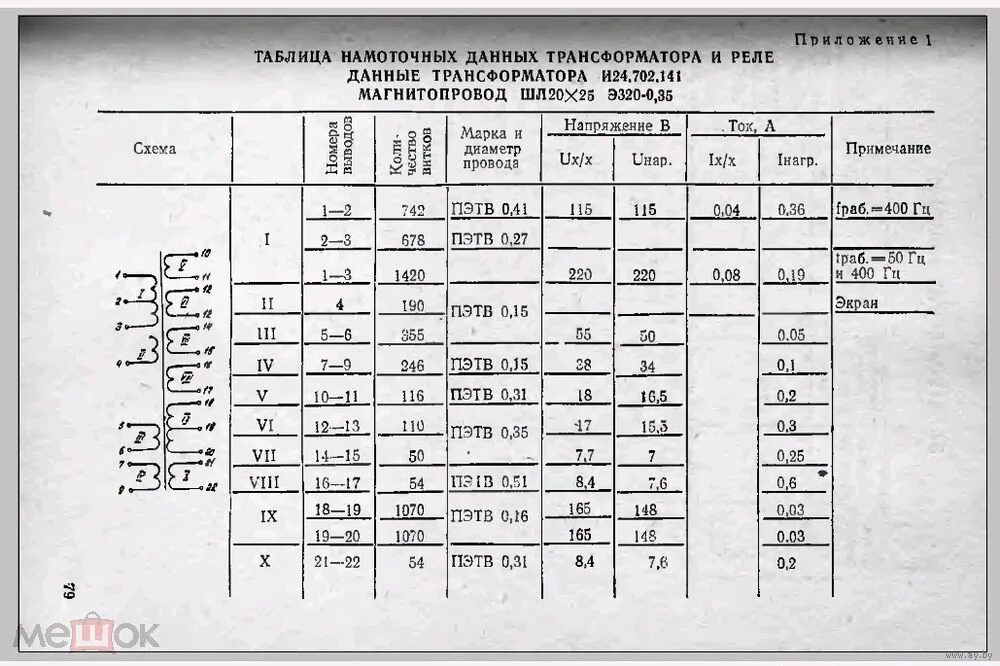 Приложение 1
ТАБЛИЦА НАМОТОЧНЫХ ДАННЫХ ТРАНСФОРМАТОРА И РЕЛЕ
ДАННЫЕ ТРАНСФОРМАТОРА И24.702.141
МАГНИТОПРОВОД ШЛ20×25 Э320-0,35
Схема Номера выводов Коли-чество витков Марка и диаметр провода Напряжение В Ток, А Примечание
Uх/х Uнар. Iх/х Iнагр.
I 1—2 742 ПЭТВ 0,41 115 115 0,04 0,36 fраб.=400 Гц
2—3 678 ПЭТВ 0,27
1—3 1420 220 220 0,08 0,19 fраб.=50 Гц и 400 Гц
II 4 190 ПЭТВ 0,15 Экран
III 5—6 355 55 50 0.05
IV 7—9 246 ПЭТВ 0,15 38 34 0,1
V 10—11 116 ПЭТВ 0,31 18 16,5 0,2
VI 12—13 110 ПЭТВ 0,35 17 15,5 0,3
VII 14—15 50 7,7 7 0,25
VIII 16—17 54 ПЭТВ 0,51 8,4 7,6 0,6
IX 18—19 1070 ПЭТВ 0,16 165 148 0,03
19—20 1070 165 148 0.03
X 21—22 54 ПЭТВ 0,31 8,4 7,6 0,2
1 2 3 4 5 6 7 9
10 11 12 13 14 15 16 17 18 19 20 21 22
I II III IV V VI VII VIII IX X
79
мешок
www.ay.by